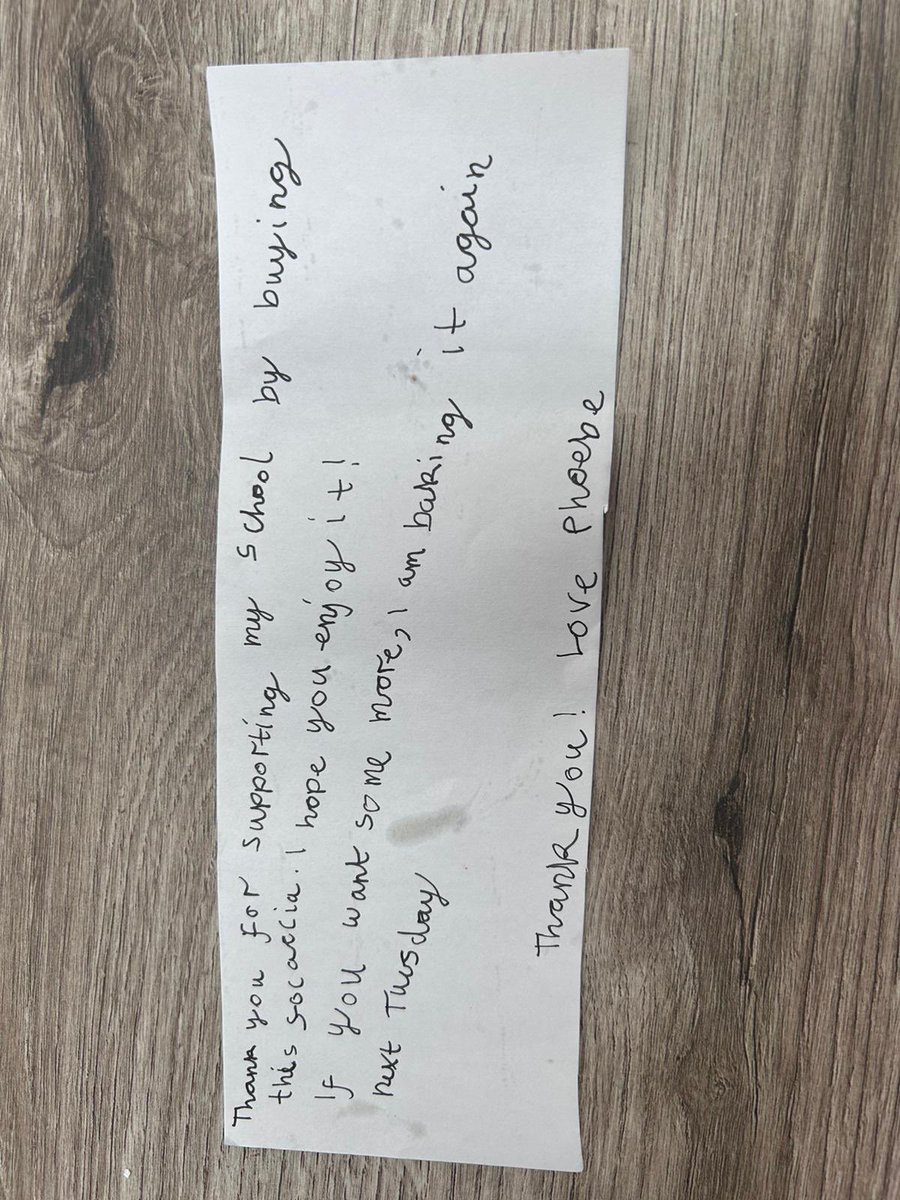 Thank you for supporting my school by buying
this focaccia. I hope you enjoy it!
If you want some more, I am baking it again
next Tuesday
Thank you! Love Phoebe